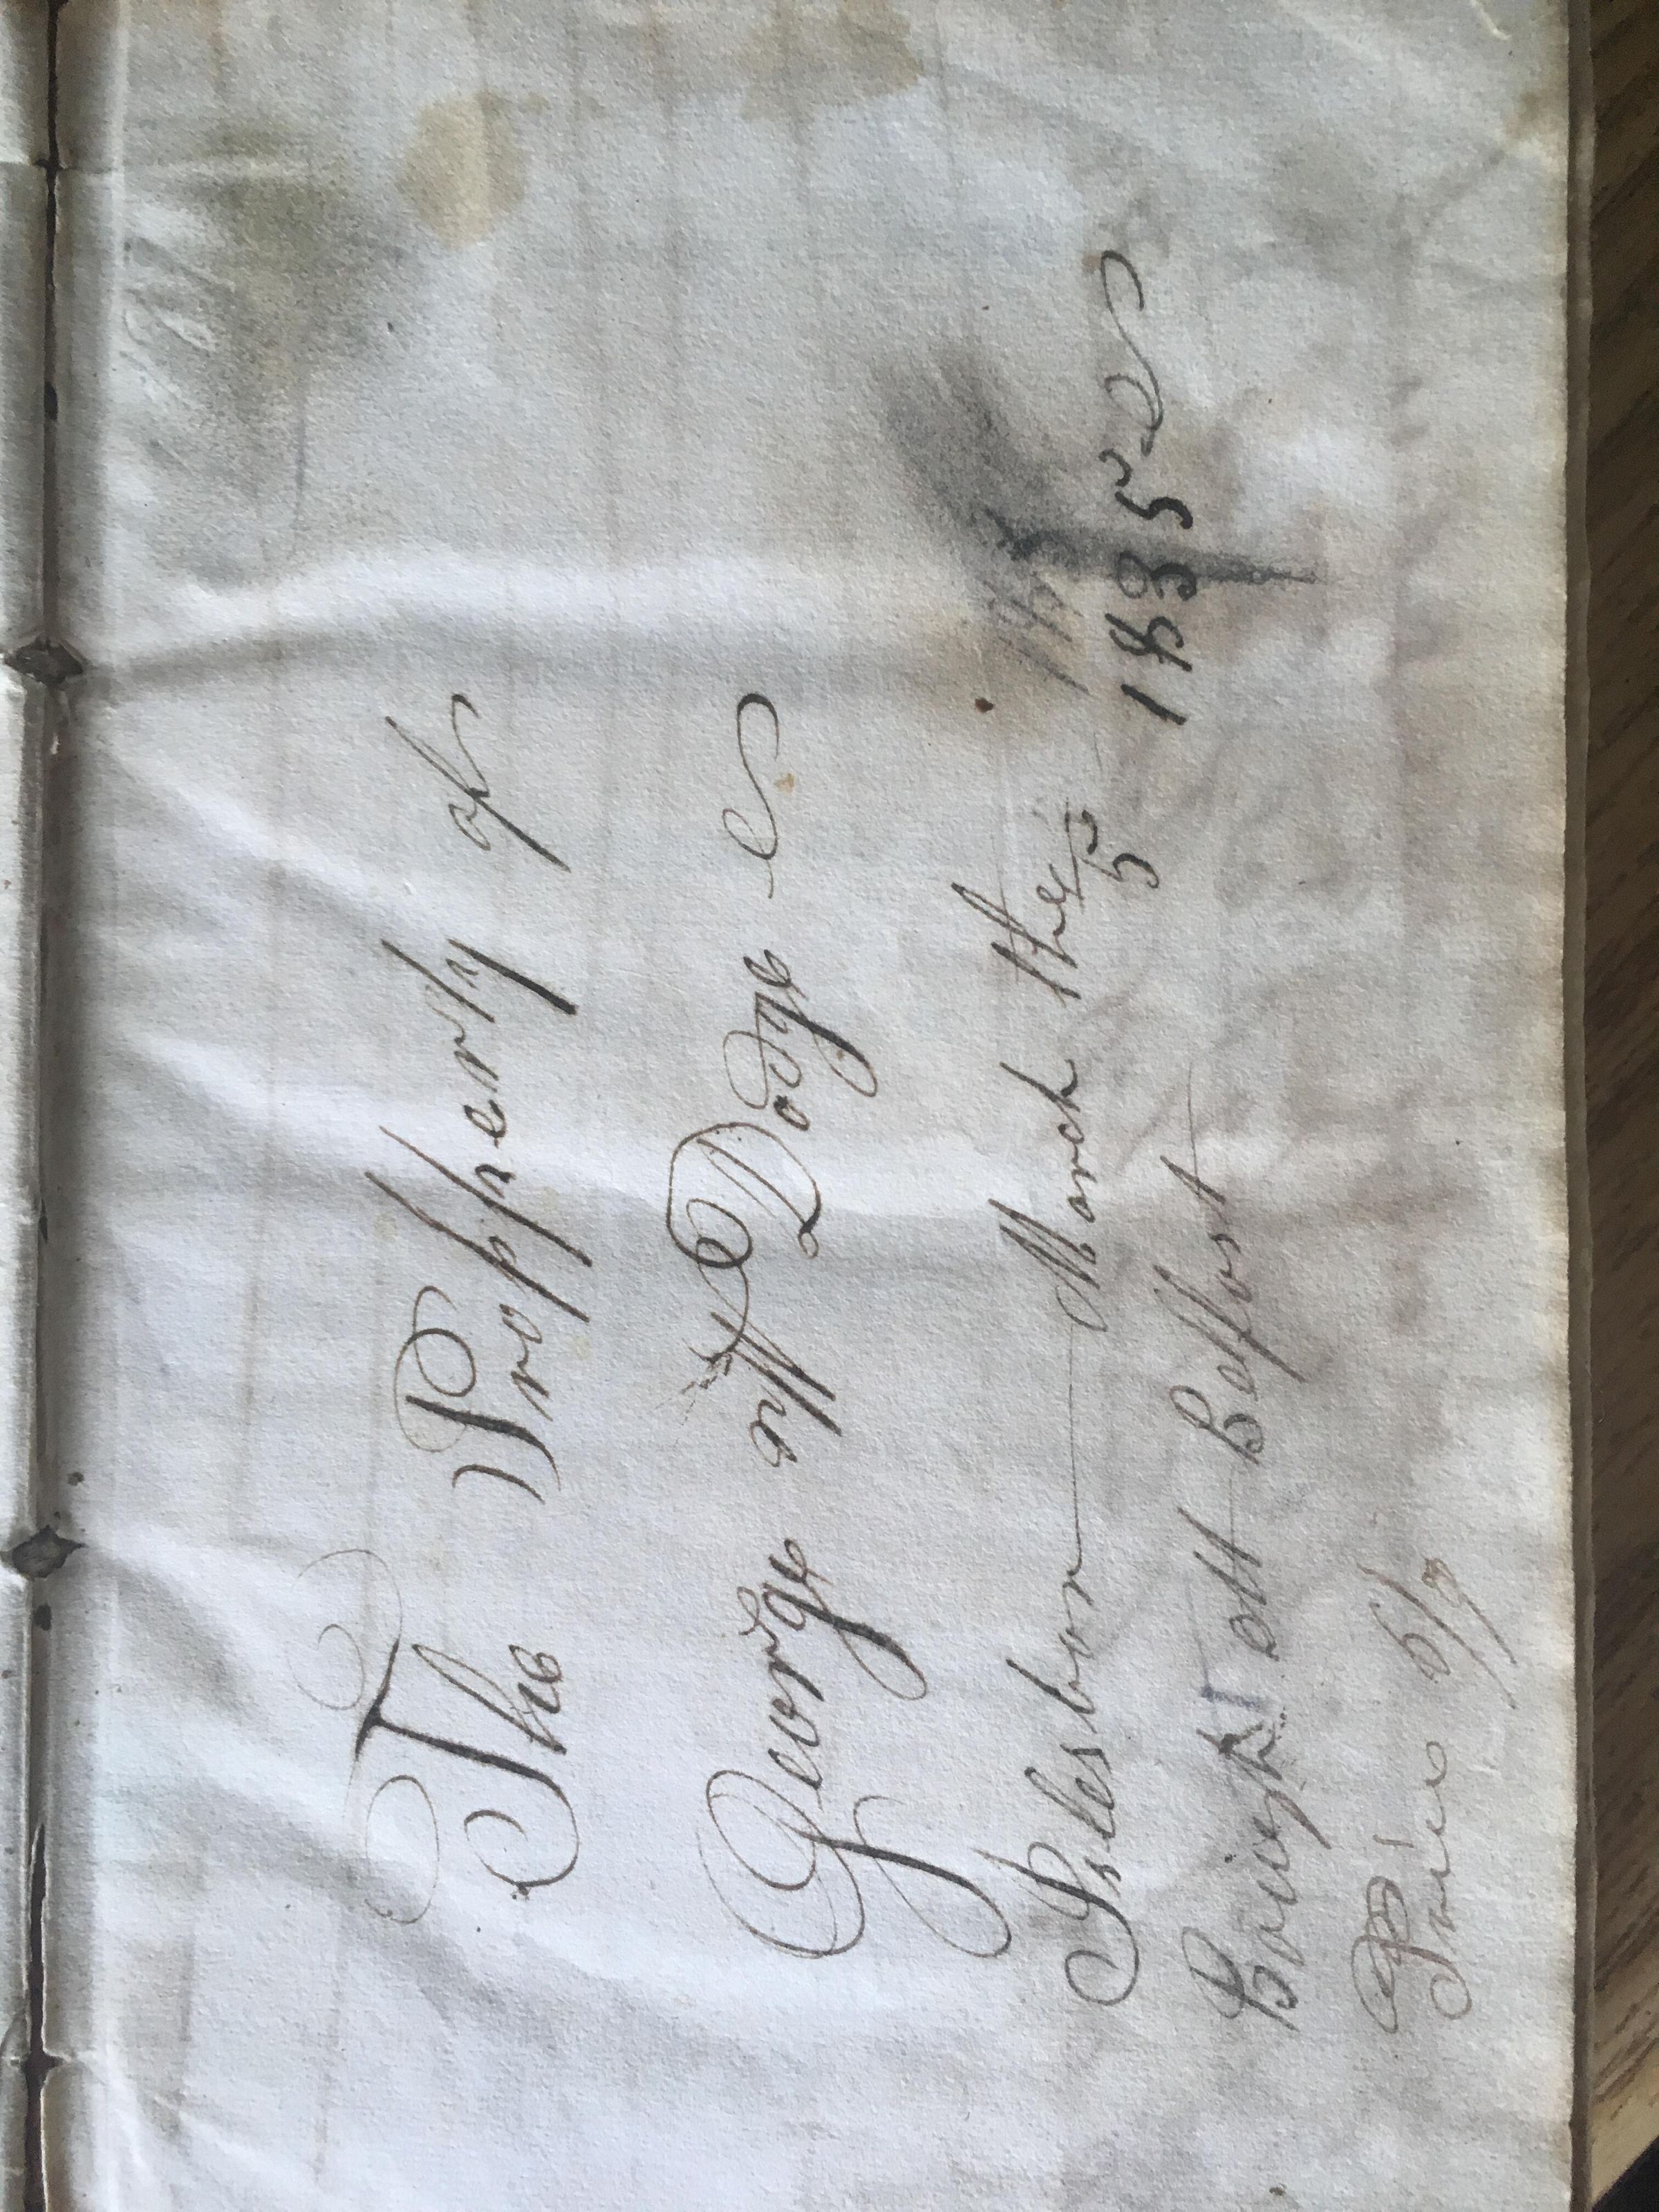 The Propperty of
George Dodge
Islesboro March the 5 1835
Bought att Belfast
Price 6/9